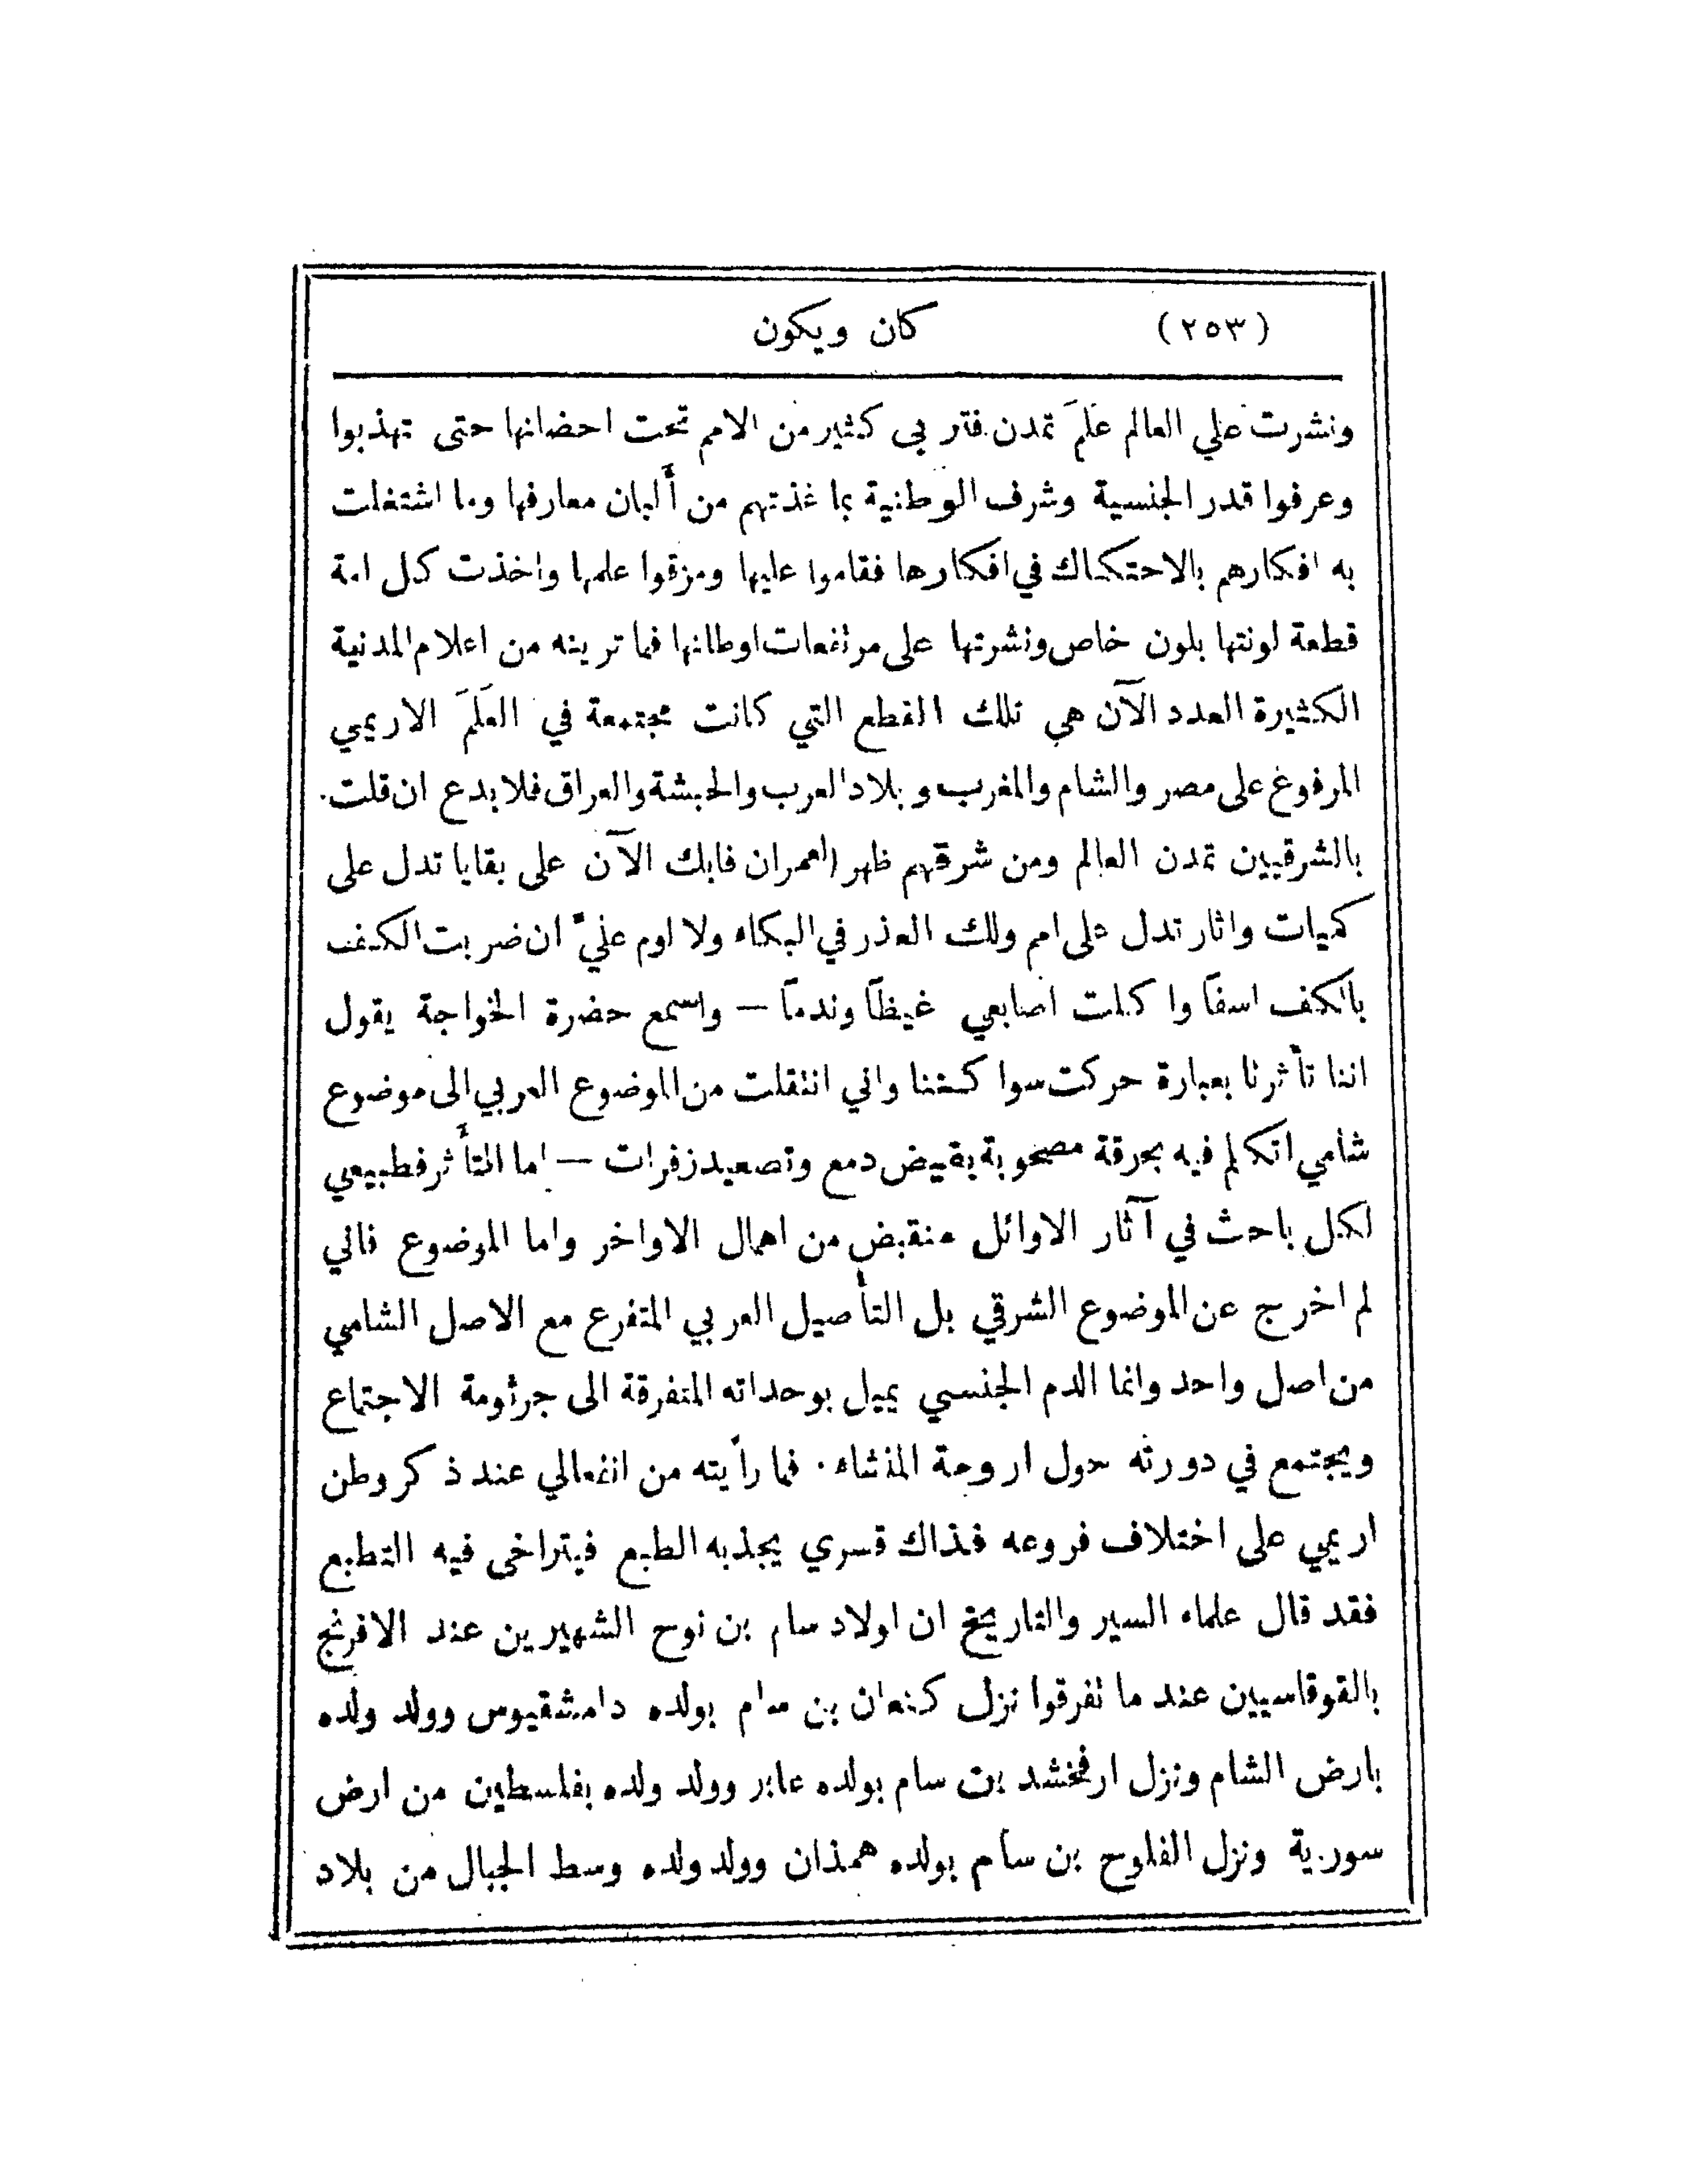 (٢٥٣) كان ويكون
ونشرت علي العالم عَلمَ تمدن فتربي كثير من الامم تحت احضانها حتى تهذبوا
وعرفوا قدر الجنسية وشرف الوطنية بما غذتهم من أَلبان معارفها وما اشتغلت
به افكارهم بالاحتكاك في افكارها فقاموا عليها ومزقوا علمها واخذت كل امة
قطعة لونتها بلون خاص ونشرتها على مرتفعات اوطانها فما ترينه من اعلام المدنية
الكثيرة العدد الآن هي تلك القطع التي كانت مجتمعة في العَلَمَ الاريمي
المرفوع على مصر والشام والمغرب وبلاد العرب والحبشة والعراق فلا بدع ان قلت
بالشرقيين تمدن العالم ومن شرقهم ظهر العمران فابك الآن على بقايا تدل على
كميات واثار تدل على امم ولك العذر في البكاء ولا لوم عليّ ان ضربت الكف
بالكف اسفاً واكلت اصابعي غيظاً وندماً — واسمع حضرة الخواجة يقول
اننا تأثرنا بعبارة حركت سواكننا واني انتقلت من الموضوع العربي الى موضوع
شامي اتكلم فيه بحرقة مصحوبة بفيض دمع وتصعيد زفرات — اما التأثر فطبيعي
لكل باحث في آثار الاوائل منقبض من اهمال الاواخر واما الموضوع فاني
لم اخرج عن الموضوع الشرقي بل التأصيل العربي المتفرع مع الاصل الشامي
من اصل واحد وانما الدم الجنسي يميل بوحداته المتفرقة الى جرثومة الاجتماع
ويجتمع في دورته حول اروحة المنشاء . فما رأيته من انفعالي عند ذكر وطن
اريمي على اختلاف فروعه فذاك قسري يجذبه الطبع فيتراخى فيه التطبع
فقد قال علماء السير والتاريخ ان اولاد سام بن نوح الشهيرين عند الافرنج
بالقوقاسيين عند ما تفرقوا نزل كنعان بن سام بولده دامشقيوس وولد ولده
بارض الشام ونزل ارفخشد بن سام بولده عابر وولد ولده بفلسطين من ارض
سورية ونزل الفلوح بن سام بولده همذان وولد ولده وسط الجبال من بلاد